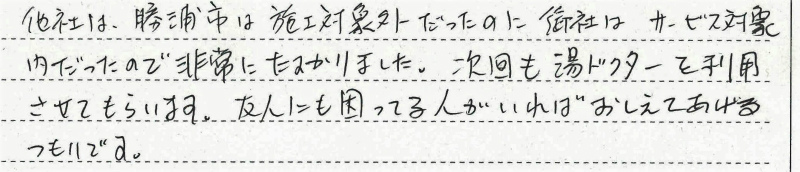 他社は、勝浦市は施工対象外だったのに御社はサービス対象
内だったので非常にたすかりました。次回も湯ドクターを利用
させてもらいます。友人にも困ってる人がいればおしえてあげる
つもりです。